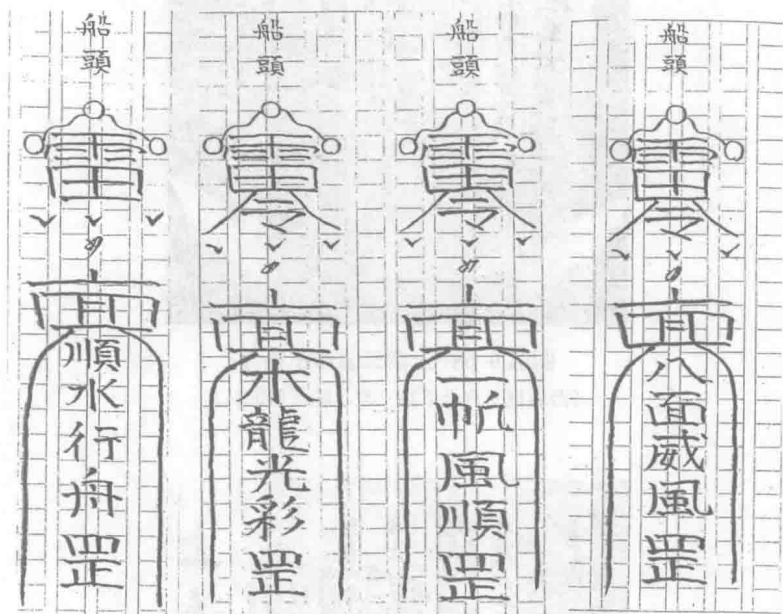 船頭
八面威風罡
船頭
一帆風順罡
船頭
木龍光彩罡
船頭
雷
順水行舟罡